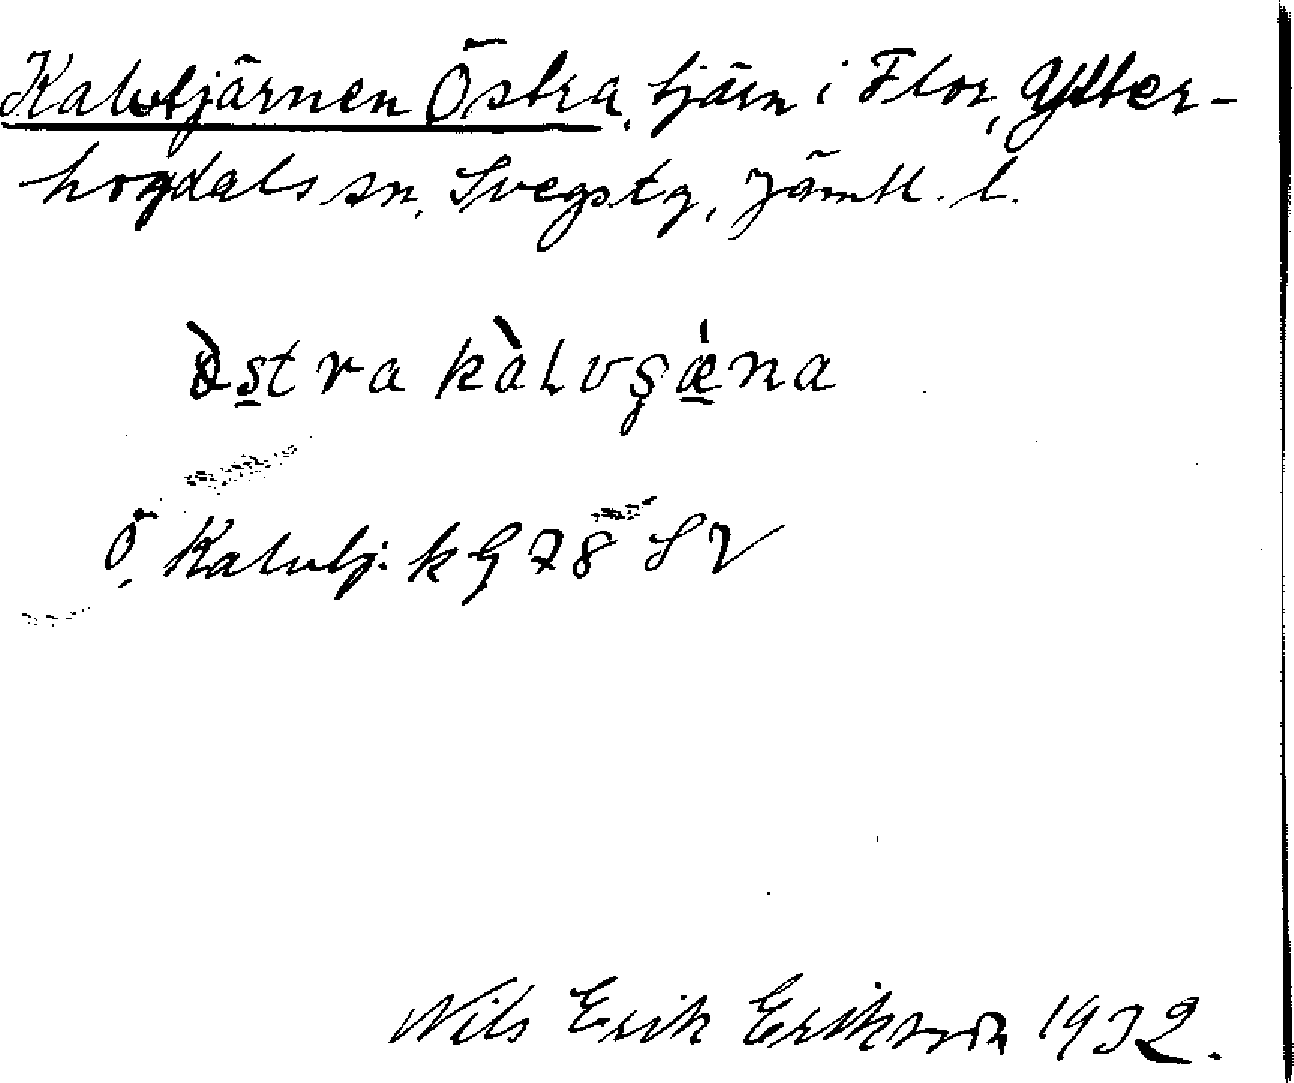 Kalvtjärnen Östra, tjärn i Flor, Ytter-
hogdals sn, Svegs tg, Jämtl. l.
òstra kàlvʂǽna
Ö. Kalvtj. k G 78 SV
Nils Erik Eriksson 1932.